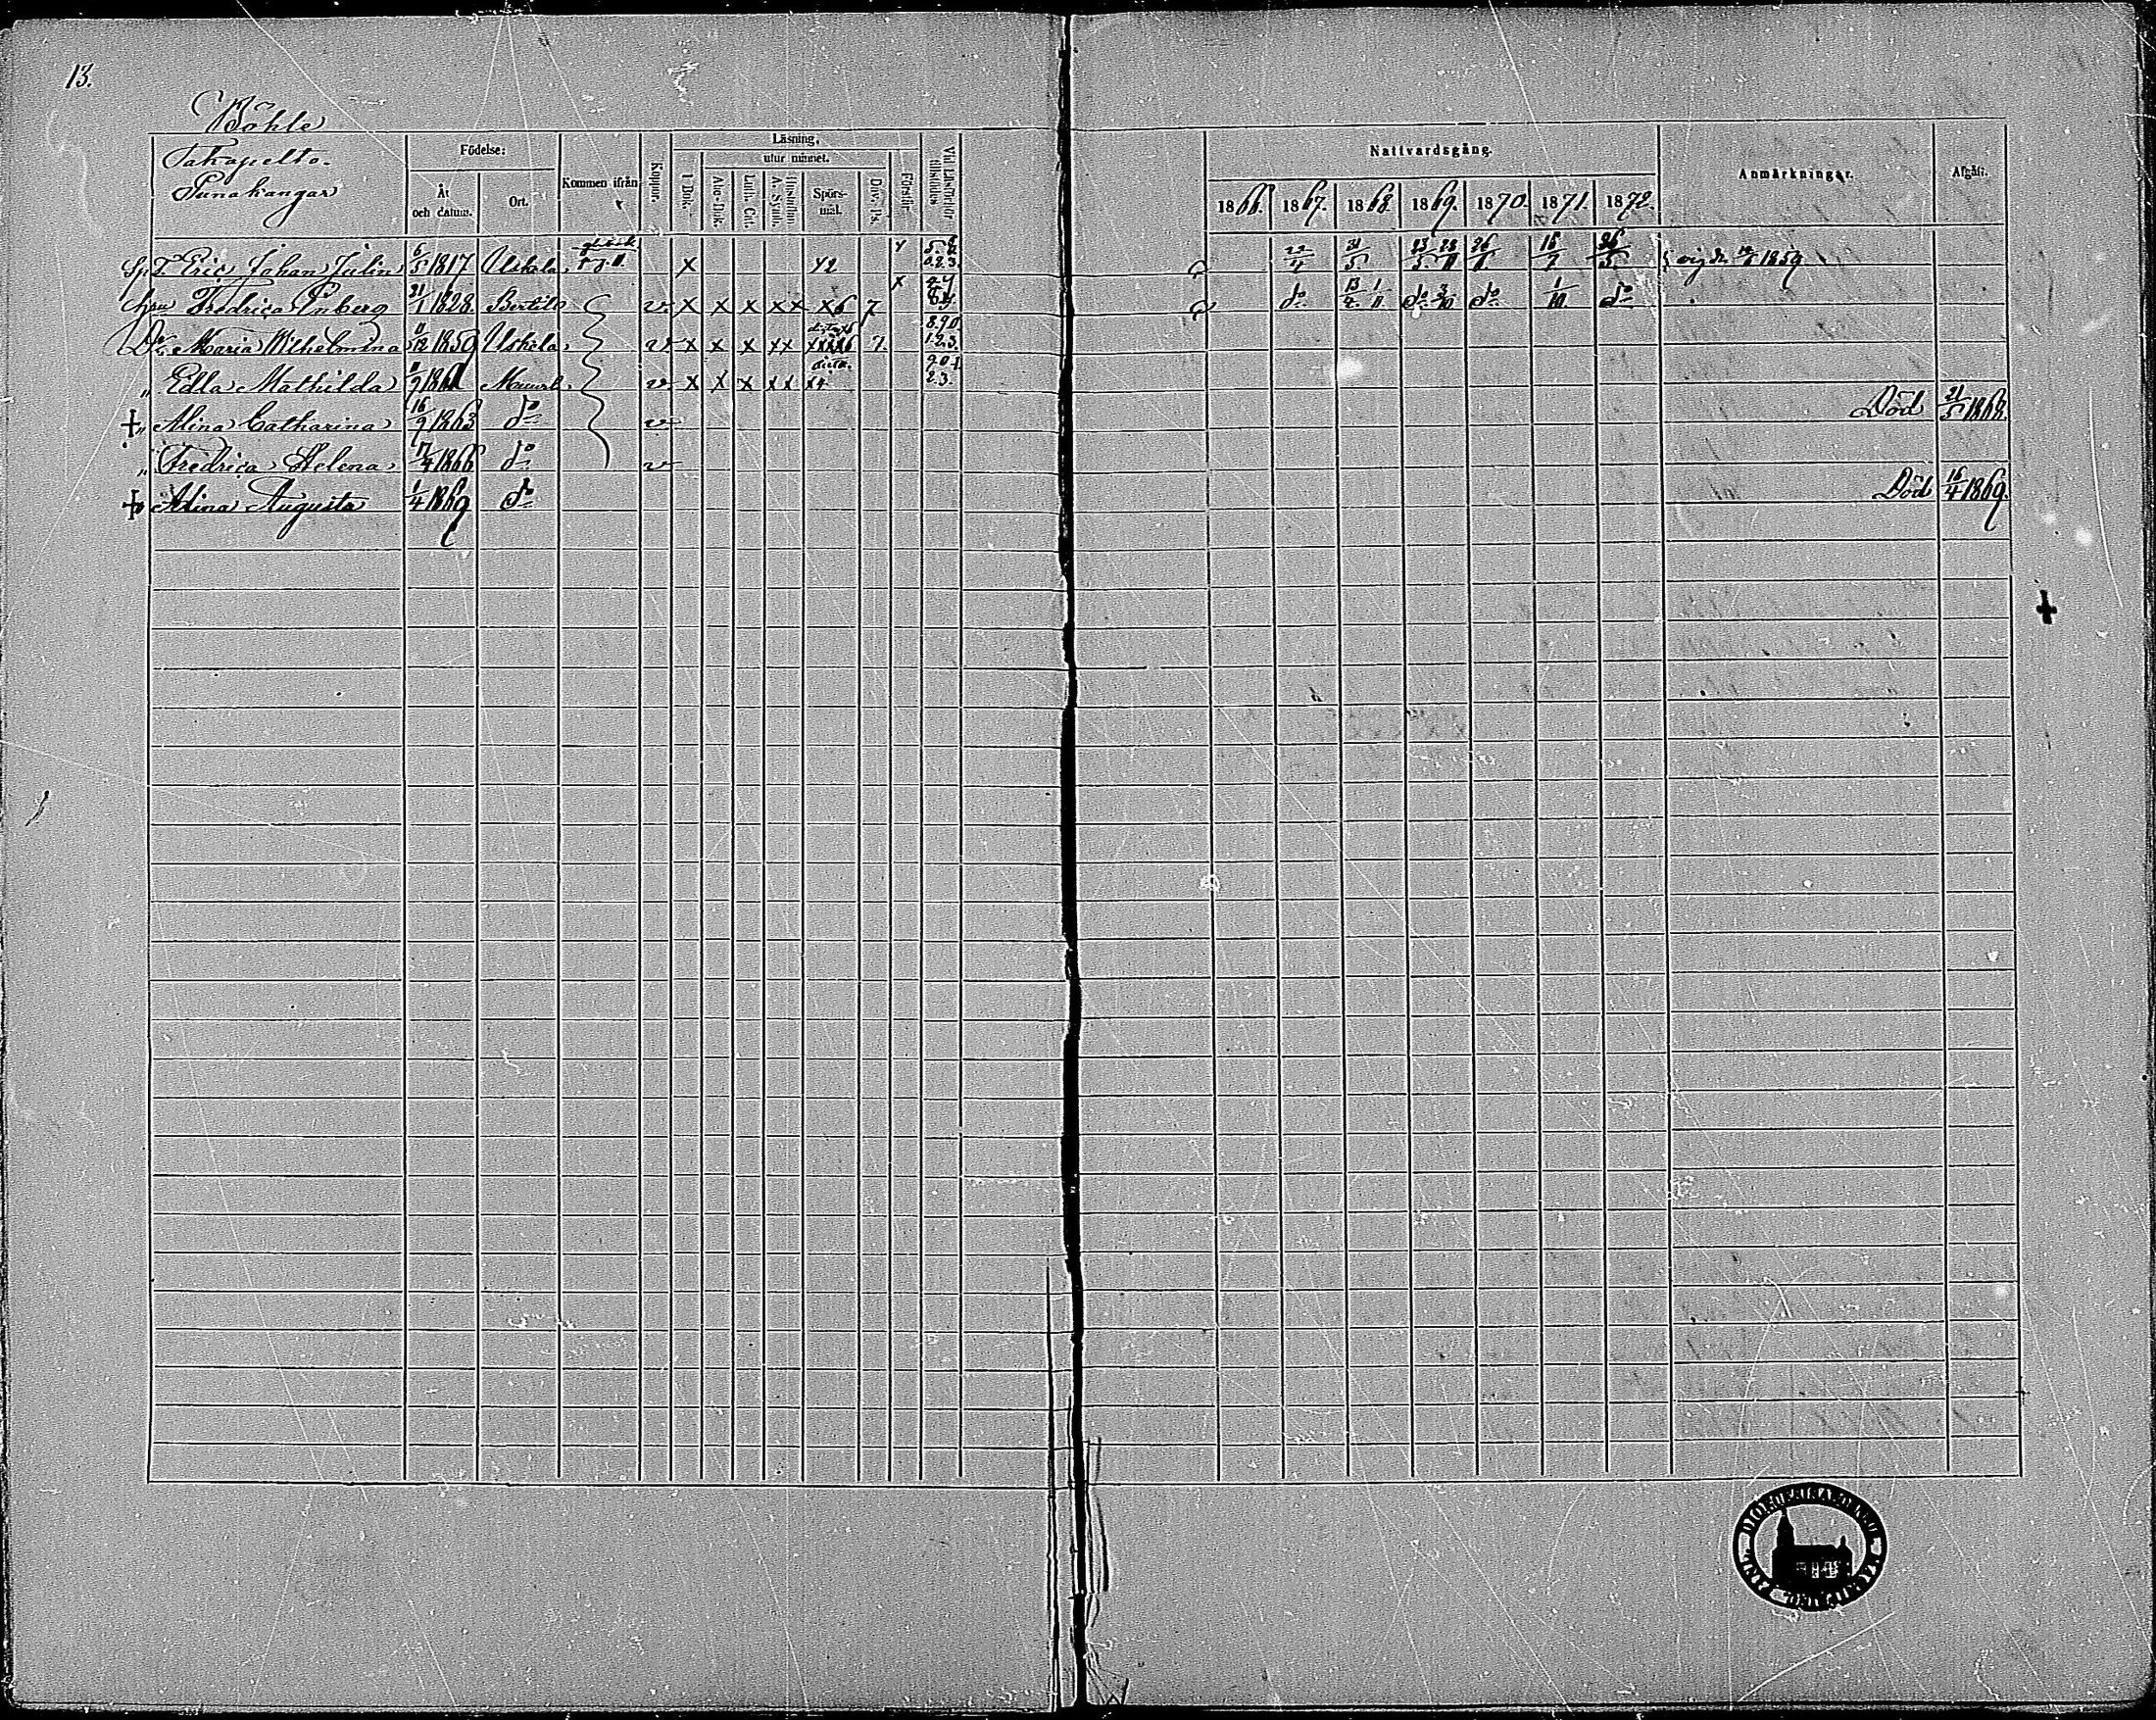 13.
Böhle
Takapelto.
Punakangar
Födelse:
År och datum.
Ort.
Kommen ifrån
Koppor.
Läsning,
utur minnet.
I Bok.
Abc-Bok.
Luth. Cat.
Hustaflan A. Symb.
Spörsmål.
Dav. Ps.
Förstår.
Vid Läsförhör tillstädes
Nattvardsgång.
1866. 1867. 1868. 1869. 1870. 1871. 1872.
Anmärkningar.
Afgått.
Eric Johan Julin 6/5 1817 Uskela x 42 22/4 31/5 23/5 26/ 16/7 26/5 1859
Hru Fredrica Enberg 21/1 1828 Bertils v x x x xx x6 7 do 13/4 1/11 do 3/10 do 1/10 do
Dr. Maria Wilhelmina 11/12 1850 Uskela v x x x xx 7. 8.9.0. 1.2.3.
" Edla Mathilda 1861 v x x x xx x4 2.3.
+ " Alina Catharina 16/9 1863 do v Död 21/5 1868.
" Fredrica Helena 17/4 1866 do v
+ " Alina Augusta 1/4 1869 do Död 16/4 1869.